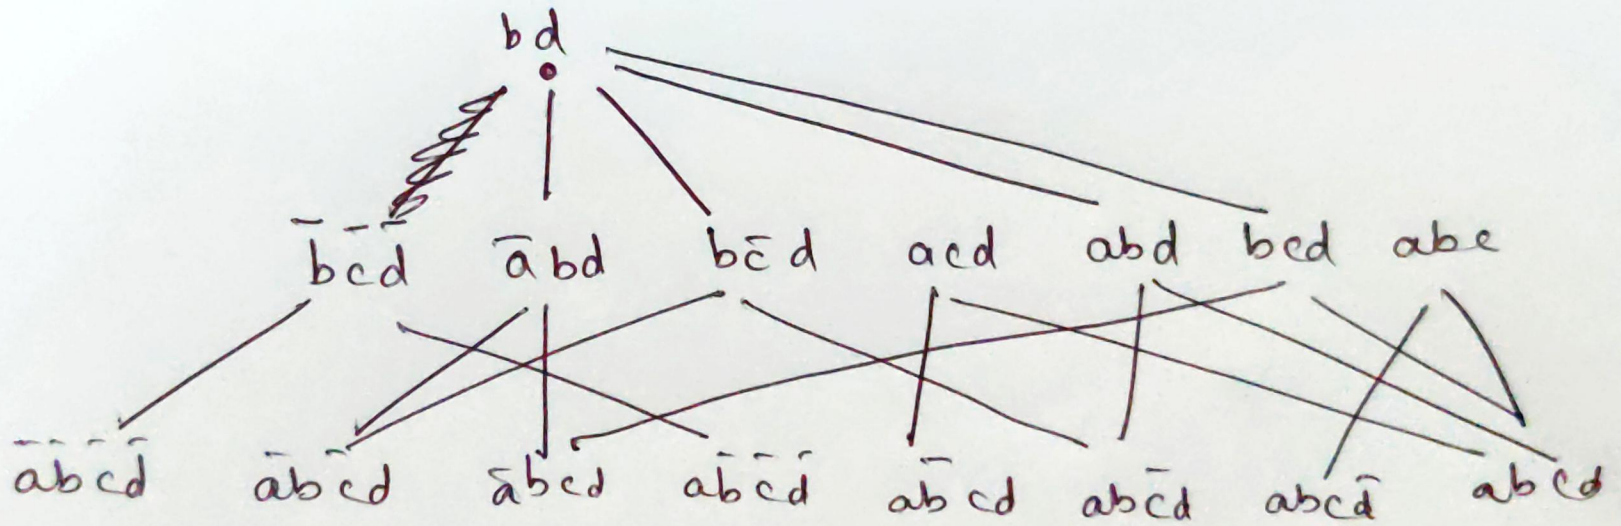 bd
b̄c̄d̄ ābd bc̄d acd abd bcd abc
āb̄c̄d̄ ābc̄d ābcd ab̄c̄d̄ ab̄cd abc̄d abcd̄ abcd